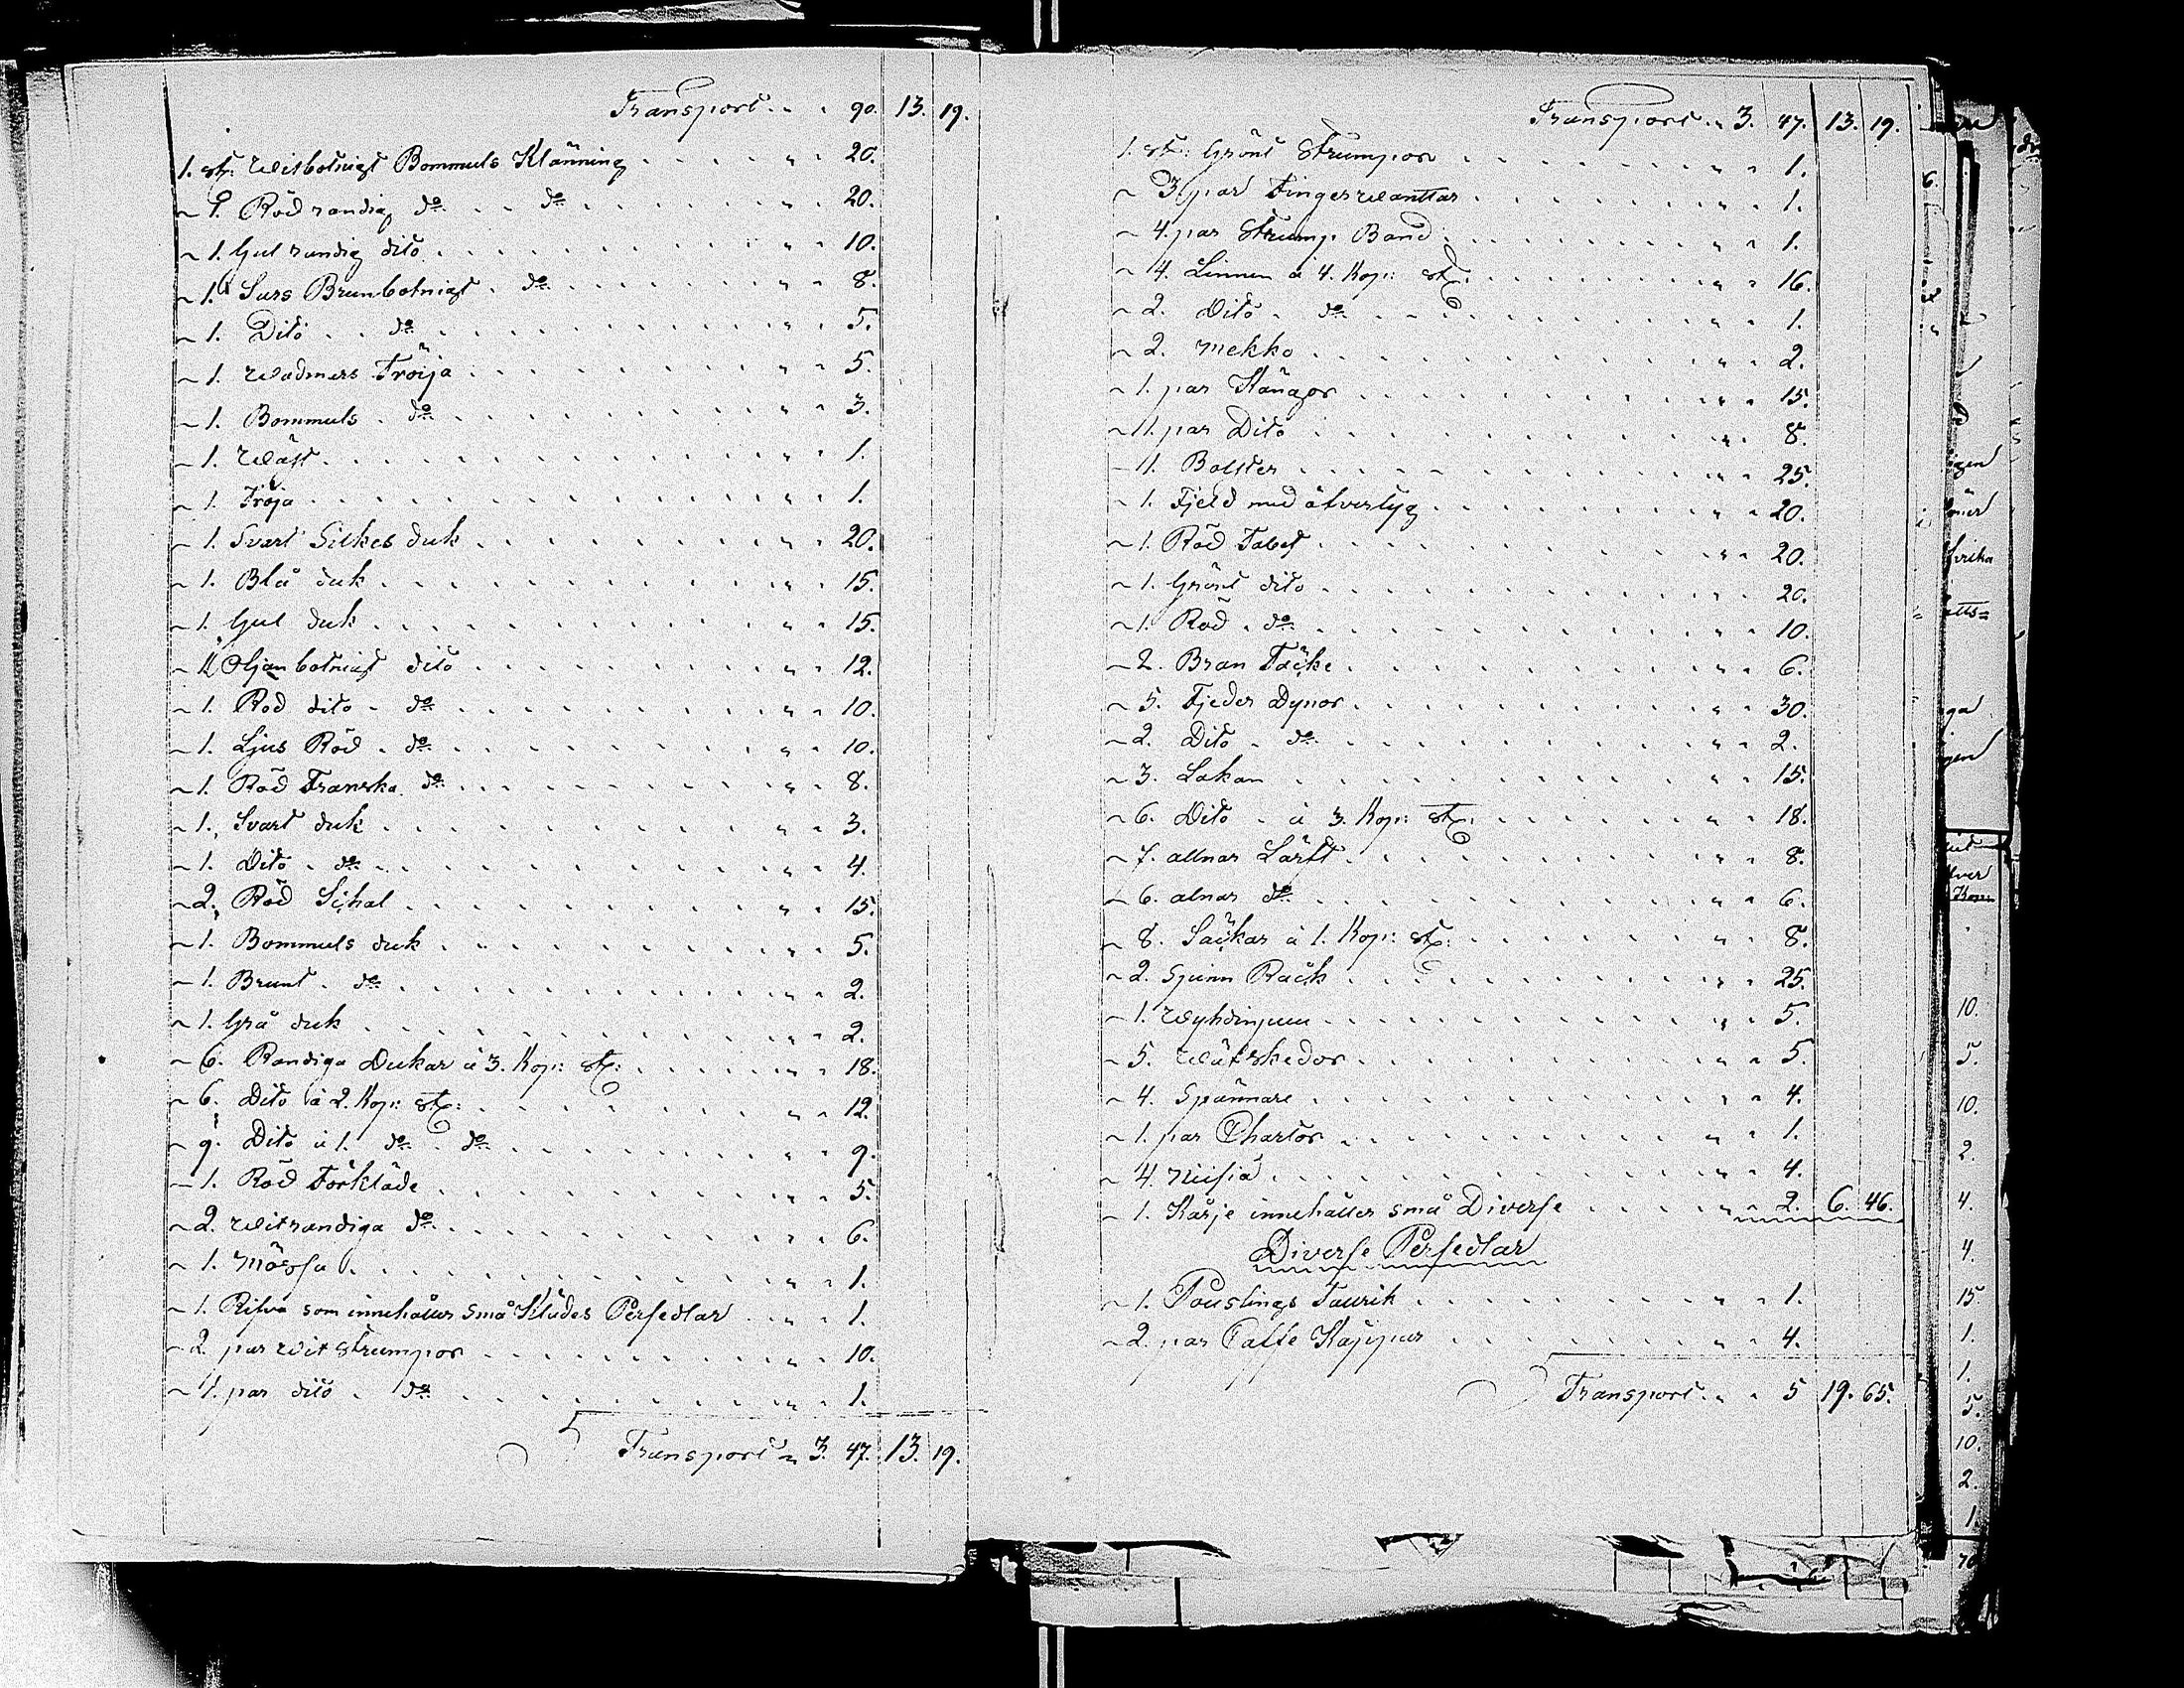 Transport 90. 13. 19.
1. st: Witbotnigt Bommuls Klänning 20.
1. Rödrandig do do 20.
1. Gul randig dito 10.
1. Surs Brunbotnigt do 8.
1. Dito do 5.
1. Wadmers Tröija 5.
1. Bommuls do 3.
1. Wäst 1.
1. Tröja 1.
1. Svart Silkes duk 20.
1. Blå duk 15.
1. Gul duk 15.
1. Oljanbotnigt dito 12.
1. Röd dito do 10.
1. Ljus Röd do 10.
1. Röd Franska do 8.
1. Svart duk 3.
1. Dito do 4.
2. Röd Schal 15.
1. Bommuls duk 5.
1. Brunt do 2.
1. Grå duk 2.
6. Randiga Dukar à 3. Kop: st: 18.
6. Dito à 2. Kop: st: 12.
9. Dito à 1. do do 9.
1. Röd Förkläde 5.
2. Witrandiga do 6.
1. Mössa 1.
1. Ritva som innehåller små Klädes Persedlar 1.
2. par Wit strumpor 10.
1. par dito do 1.
Transport 3. 47. 13. 19.
Transport 3. 47. 13. 19.
1. st: Grönt Strumpor 1.
3. par Fingerwanttar 1.
4. par Strump Band 1.
4. Linnen à 4. Kop: st: 16.
2. Dito do 1.
2. Mekko 2.
1. par Kängor 15.
1. par Dito 8.
1. Bolster 25.
1. Fjeld med åtvertyg 20.
1. Röd Tabet 20.
1. Grönt dito 20.
1. Röd do 10.
2. Bran Täcke 6.
5. Fjeder Dynor 30.
2. Dito do 2.
3. Lakan 15.
6. Dito à 3. Kop: st: 18.
7. allnar Lärft 8.
6. alnar do 6.
8. Säckar à 1. Kop: st: 8.
2. Spinn Råck 25.
1. Wyhdinpuu 5.
5. Wäfskedor 5.
4. Spännare 4.
1. par Chartor 1.
4. Niisiä 4.
1. Karje innehåller små Diverse 2. 6. 46.
Diverse Persedlar
1. Pouslings Taurik 1.
2. par Caffe Kappar 4.
Transport 5 19. 65.